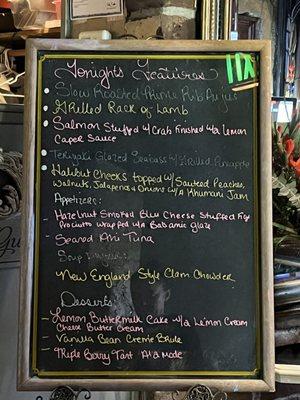 Tonights Features
Slow Roasted Prime Rib Au Jus
Grilled Rack of Lamb
Salmon Stuffed w/ Crab finished w/a Lemon
Caper Sauce
Teriyaki Glazed Seabass w/ Grilled Pineapple
Halibut Cheeks topped w/ Sauteed Peaches,
Walnuts, Jalapeno & Onions w/A Khumani Jam
Appetizers:
Hazelnut Smoked Blue Cheese Stuffed Figs
Prociutto wrapped w/a Balsamic glaze
Seared Ahi Tuna
Soup
New England Style Clam Chowder
Desserts
Lemon Buttermilk Cake w/a Lemon Cream
Cheese Butter Cream
Vanilla Bean Creme Brule
Triple Berry Tart Ala Mode